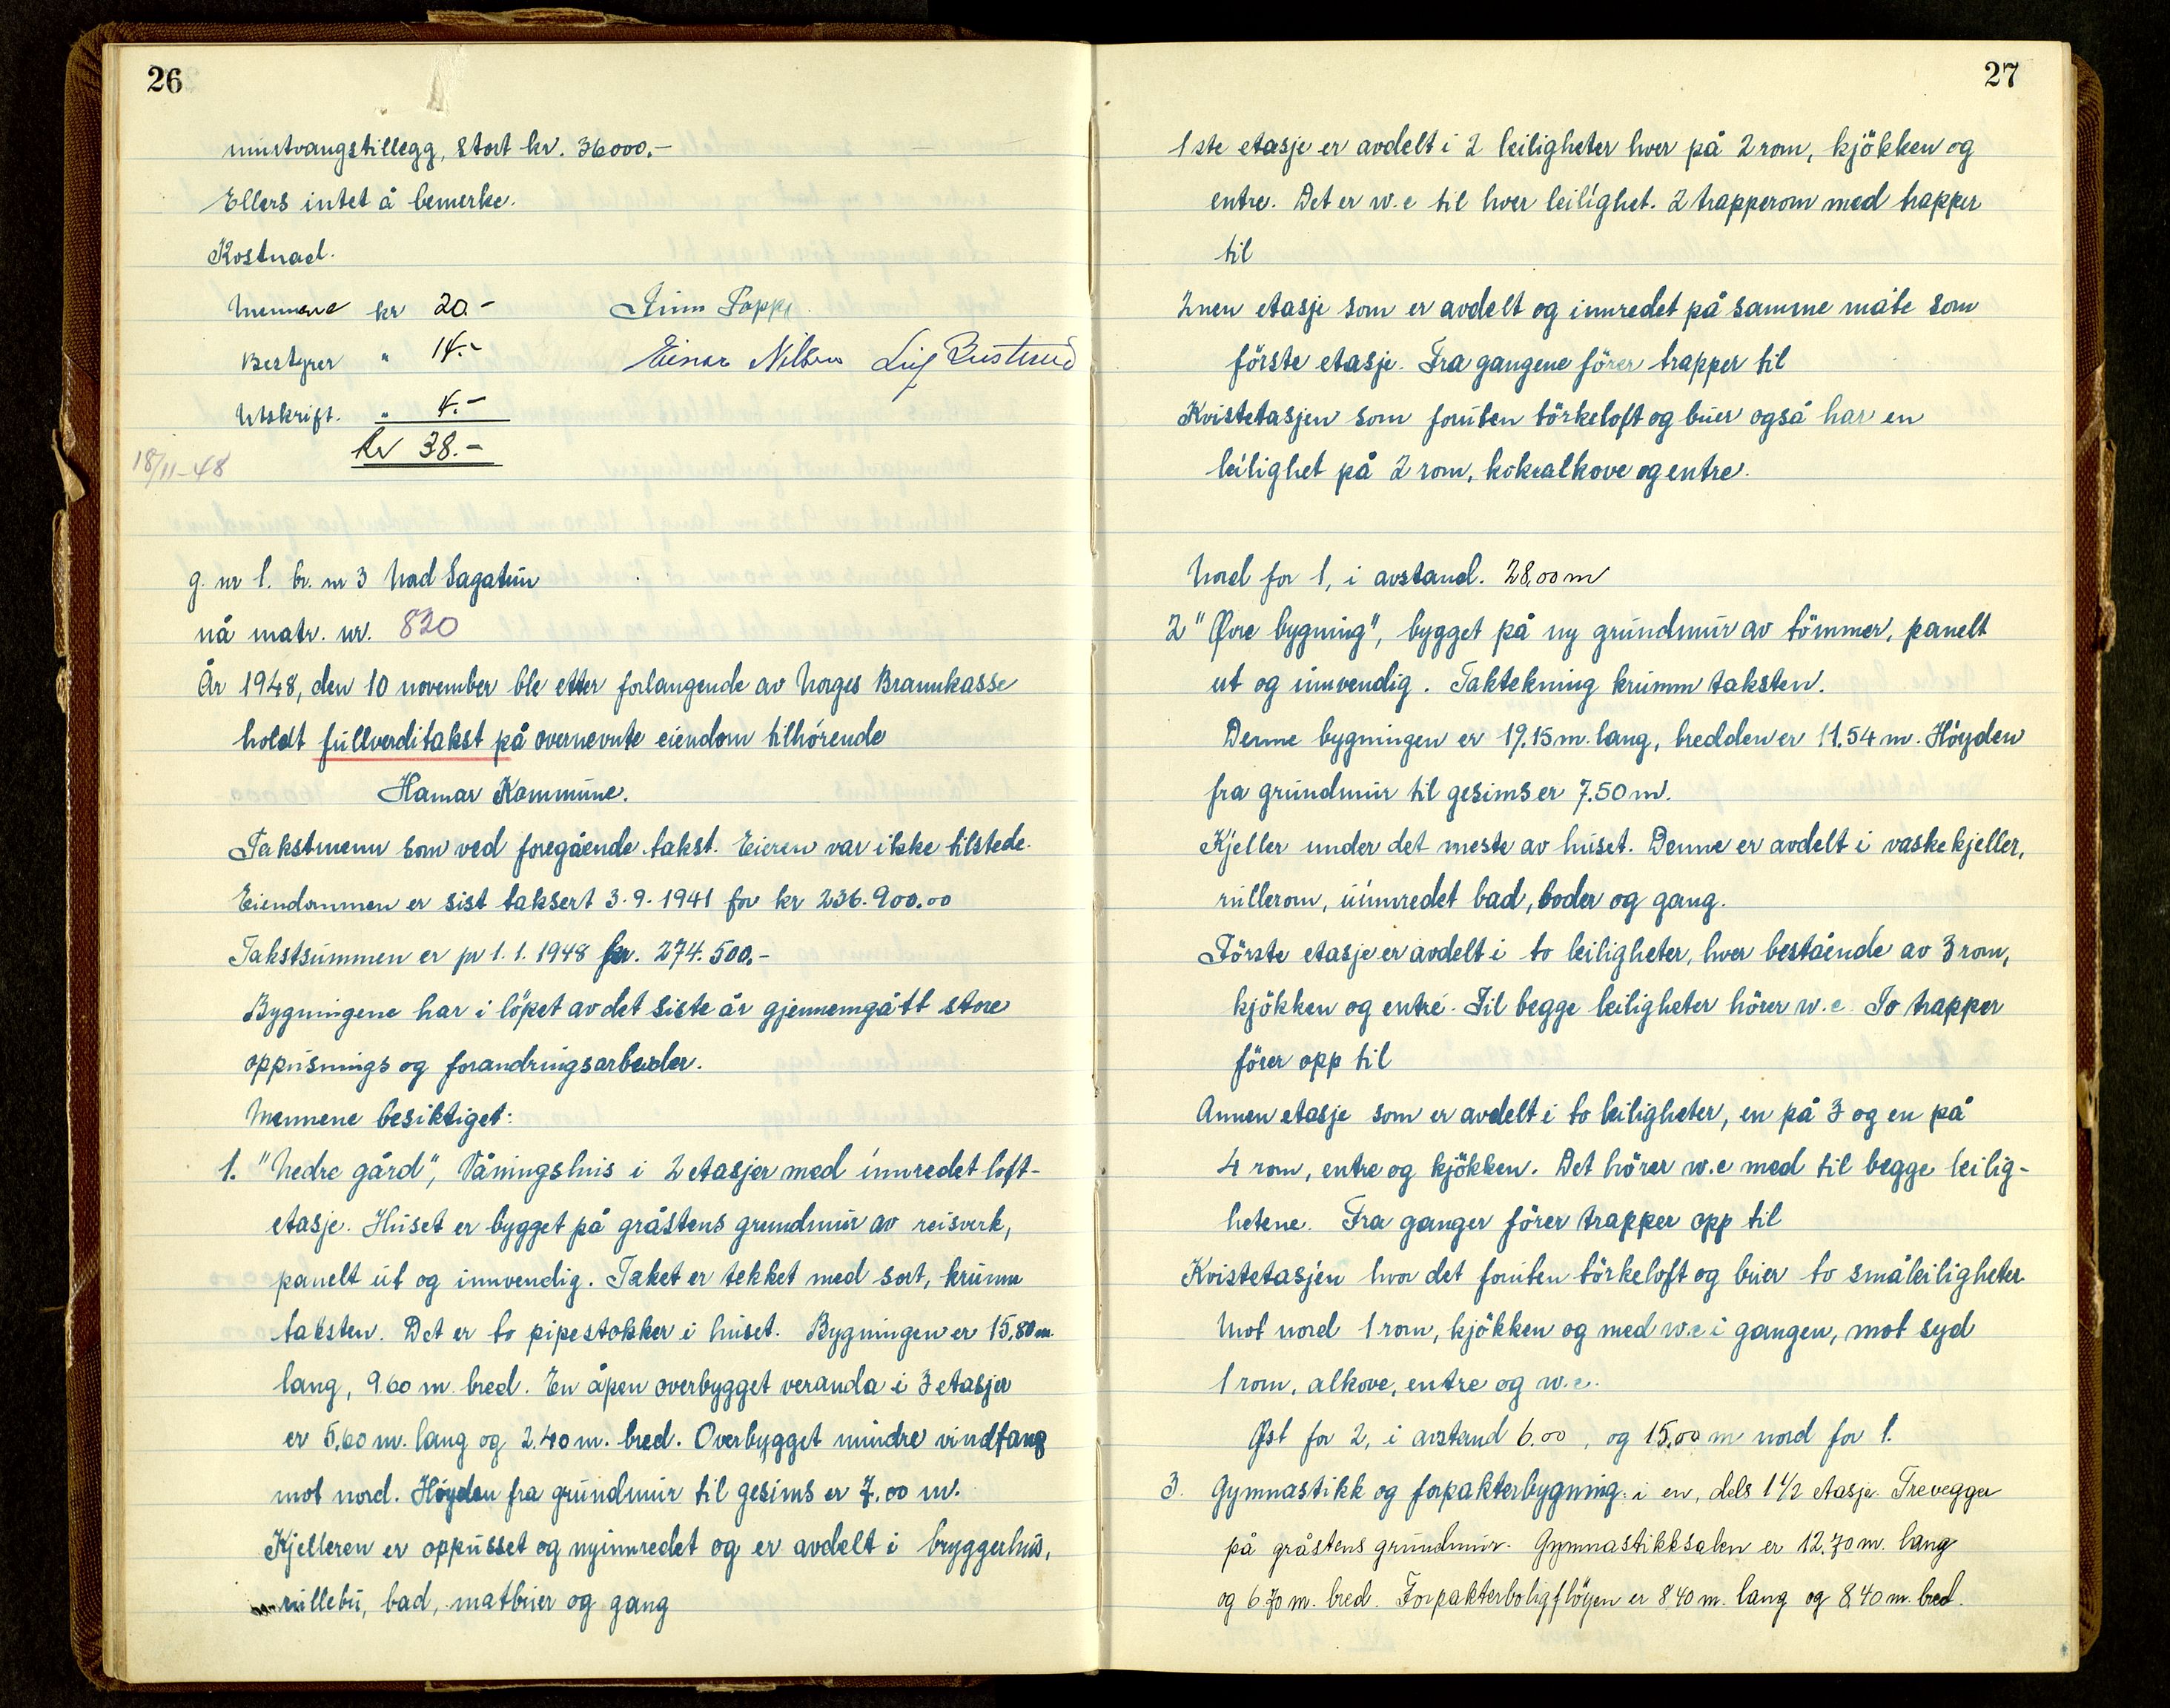 26
minstvangstillegg, stort kr. 36000.-
Ellers intet å bemerke.
Kostnad.
Mennene kr 20.-
Finn Poppe
Bestyrer " 14.-
Einar Nilsen Leif Rustund
Utskrift. " 4.-
kr 38.-
18/11-48
g. nr 1. br. nr 3 Nad Sagatun
nå matr. nr. 820
År 1948, den 10 november ble etter forlangende av Norges Brannkasse
holdt fullverditakst på overnevnte eiendom tilhørende
Hamar Kommune.
Takstmenn som ved foregående takst. Eieren var ikke tilstede.
Eiendommen er sist taksert 3.9.1941 for kr 236.900.00
Takstsummen er pr 1.1.1948 kr. 274.500.-
Bygningene har i löpet av det siste år gjennemgått store
oppusnings og forandringsarbeider.
Mennene besiktiget:
1. "Nedre gård", Våningshus i 2 etasjer med innredet loft-
etasje. Huset er bygget på gråstens grundmur av reisverk,
panelt ut og innvendig. Taket er tekket med sort, krumm
taksten. Det er to pipestokker i huset. Bygningen er 15,80 m.
lang, 9.60 m. bred. En åpen overbygget veranda i 3 etasjer
er 5,60 m. lang og 2.40 m. bred. Overbygget mindre vindfang
mot nord. Höyden fra grundmur til gesims er 7.00 m.
Kjelleren er oppusset og nyinnredet og er avdelt i bryggerhus,
rullebu, bad, matbuer og gang
27
1ste etasje er avdelt i 2 leiligheter hver på 2 rom, kjökken og
entre. Det er w.c til hver leilighet. 2 trapperom med trapper
til
2nen etasje som er avdelt og innredet på samme måte som
förste etasje. Fra gangene förer trapper til
Kvistetasjen som foruten törkeloft og buer også har en
leilighet på 2 rom, kokealkove og entre.
Nord for 1, i avstand. 28,00 m
2 "Øvre bygning", bygget på ny grundmur av tömmer, panelt
ut og innvendig. Taktekning krumm taksten.
Denne bygningen er 19.15 m. lang, bredden er 11.54 m. Höyden
fra grundmur til gesims er 7.50 m.
Kjeller under det meste av huset. Denne er avdelt i vaskekjeller,
rullerom, uinnredet bad, boder og gang.
Förste etasje er avdelt i to leiligheter, hver bestående av 3 rom,
kjökken og entré. Til begge leiligheter hörer w.c. To trapper
förer opp til
Annen etasje som er avdelt i to leiligheter, en på 3 og en på
4 rom, entre og kjökken. Det hörer w.c med til begge leilig-
hetene. Fra ganger förer trapper opp til
Kvistetasjen hvor det foruten törkeloft og buer to småleiligheter.
Mot nord 1 rom, kjökken og med w.c i gangen, mot syd
1 rom, alkove, entre og w.c.
Øst for 2, i avstand 6.00, og 15,00 m nord for 1.
3. Gymnastikk og forpakterbygning. i en, dels 1 1/2 etasje. Trevegger
på gråstens grundmur. Gymnastikksalen er 12.70 m. lang
og 6.70 m. bred. Forpakterboligflöyen er 8,40 m. lang og 8.40 m. bred.